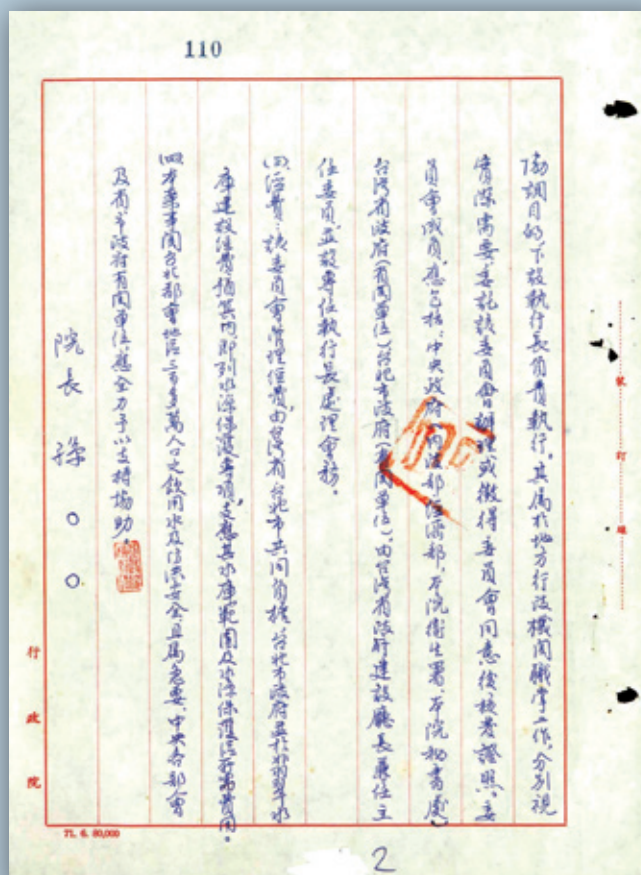 110
協調目的下設執行長負責執行。其屬於地方行政機關職掌工作，分別視
實際需要，委託該委員會辦理或徵得委員會同意後核發證照。委
員會成員，應包括：中央政府（內政部、經濟部、本院衛生署、本院秘書處）
台灣省政府（有關單位）台北市政府（有關單位），由台灣省政府建設廳長兼任主
任委員，並設專任執行長處理會務。
㈢經費：該委員會管理經費，由台灣省、台北市共同負擔，台北市政府並於翡翠水
庫建設經費概算內即列水源保護專項，支應其水庫範圍及水源保護活所需費用。
㈣本案事關台北都會地區三百多萬人口之飲用水及防洪安全且屬急要，中央各部會
及省、市政府有關單位應全力予以支持協助。
院長 孫○○
行政院
裝訂線
71. 6. 80,000
2